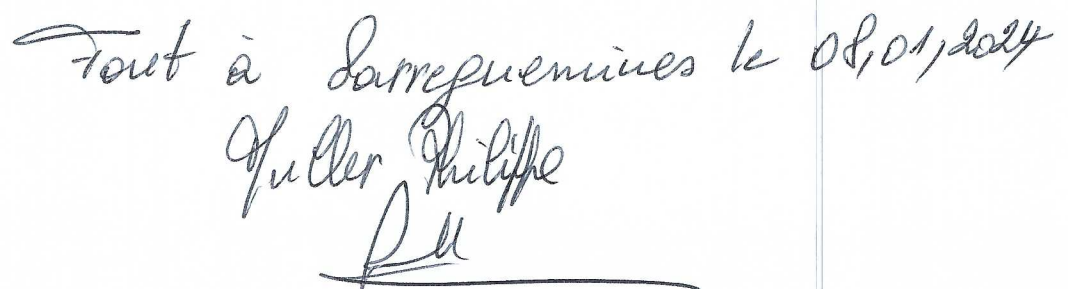 Fait à Sarreguemines le 08,01,2024
Muller Philippe
PM